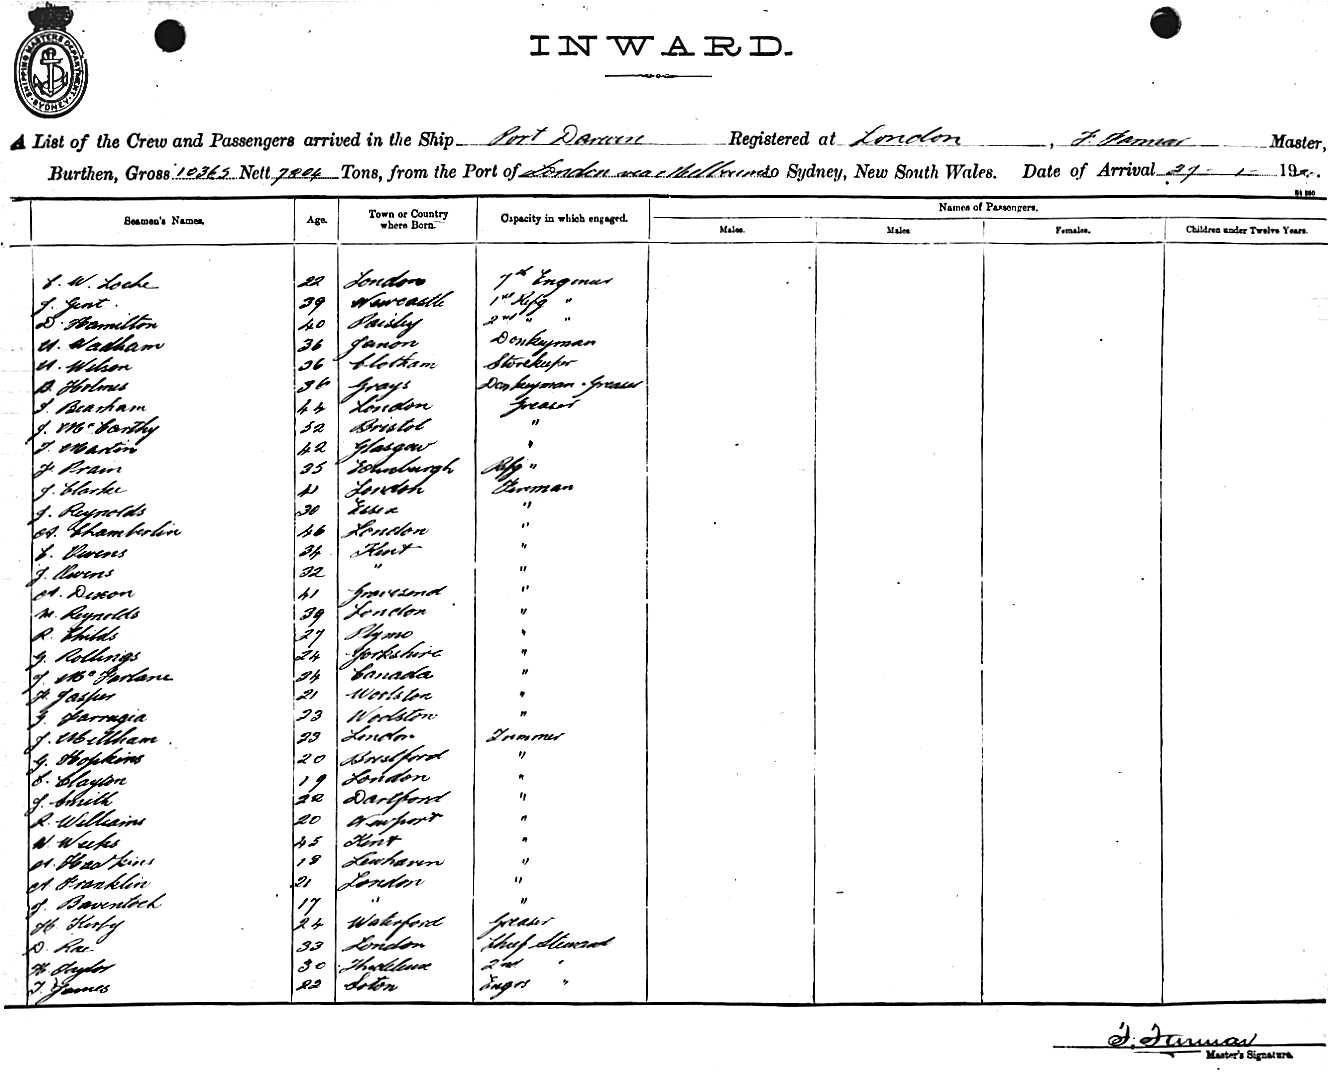 SHIPPING MASTERS DEPARTMENT SYDNEY
INWARD.
A List of the Crew and Passengers arrived in the Ship Port Darwin Registered at London, F. Farmar Master,
Burthen, Gross 10365 Nett 7204 Tons, from the Port of London via Melbourne to Sydney, New South Wales. Date of Arrival 27 - 1 - 19
Seamen's Names. Age. Town or Country where Born. Capacity in which engaged. Names of Passengers.
Males. Males Females. Children under Twelve Years.
C. W. Locke 22 London 7th Engineer
J. Gent. 39 Newcastle 1st Refg "
D. Hamilton 40 Paisley 2nd " "
W. Wadham 36 Donkeyman
W. Wilson 36 Clotham Storekeeper
B. Holmes 36 Grays Donkeyman - Greaser
J. Bearham 44 London Greaser
J. McCarthy 52 Bristol "
T. Martin 42 Glasgow "
F. Pram 35 Edinburgh Refg "
J. Clarke 41 London Fireman
J. Reynolds 30 Essex "
A. Chamberlin 46 London "
C. Owens 34 Kent "
J. Owens 32 " "
A. Dixon 41 Gravesend "
M. Reynolds 39 London "
R. Childs 27 Plymo "
G. Rollings 24 Yorkshire "
J. McFarlane 24 Canada "
F. Jasper 21 Woolston "
G. Farrugia 23 Woolston "
J. Meltham 23 London Trimmer
G. Hopkins 20 "
C. Clayton 19 London "
J. Smith 22 Dartford "
R. Williams 20 Newport "
W. Weeks 45 Kent "
A. Hopkins 18 Lewhaven "
A. Franklin 21 London "
J. Baventoch 17 " "
H. Kirby 24 Waterford Greaser
D. Rae 33 London Chief Steward
H. Taylor 30 2nd "
T. James 22 Soton Engrs "
F. Farmar
Master's Signature.